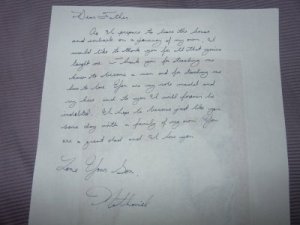 Dear Father,
As I prepare to leave this house
and embark on a journey of my own, I
would like to thank you for all that you've
taught me. I thank you for teaching me
how to become a man and for teaching me
how to love. You are my role model and
my hero and to you I will forever be
indebted. I hope to become just like you
some day with a family of my own. You
are a great dad and I love you.
Love Your Son,
Nathaniel